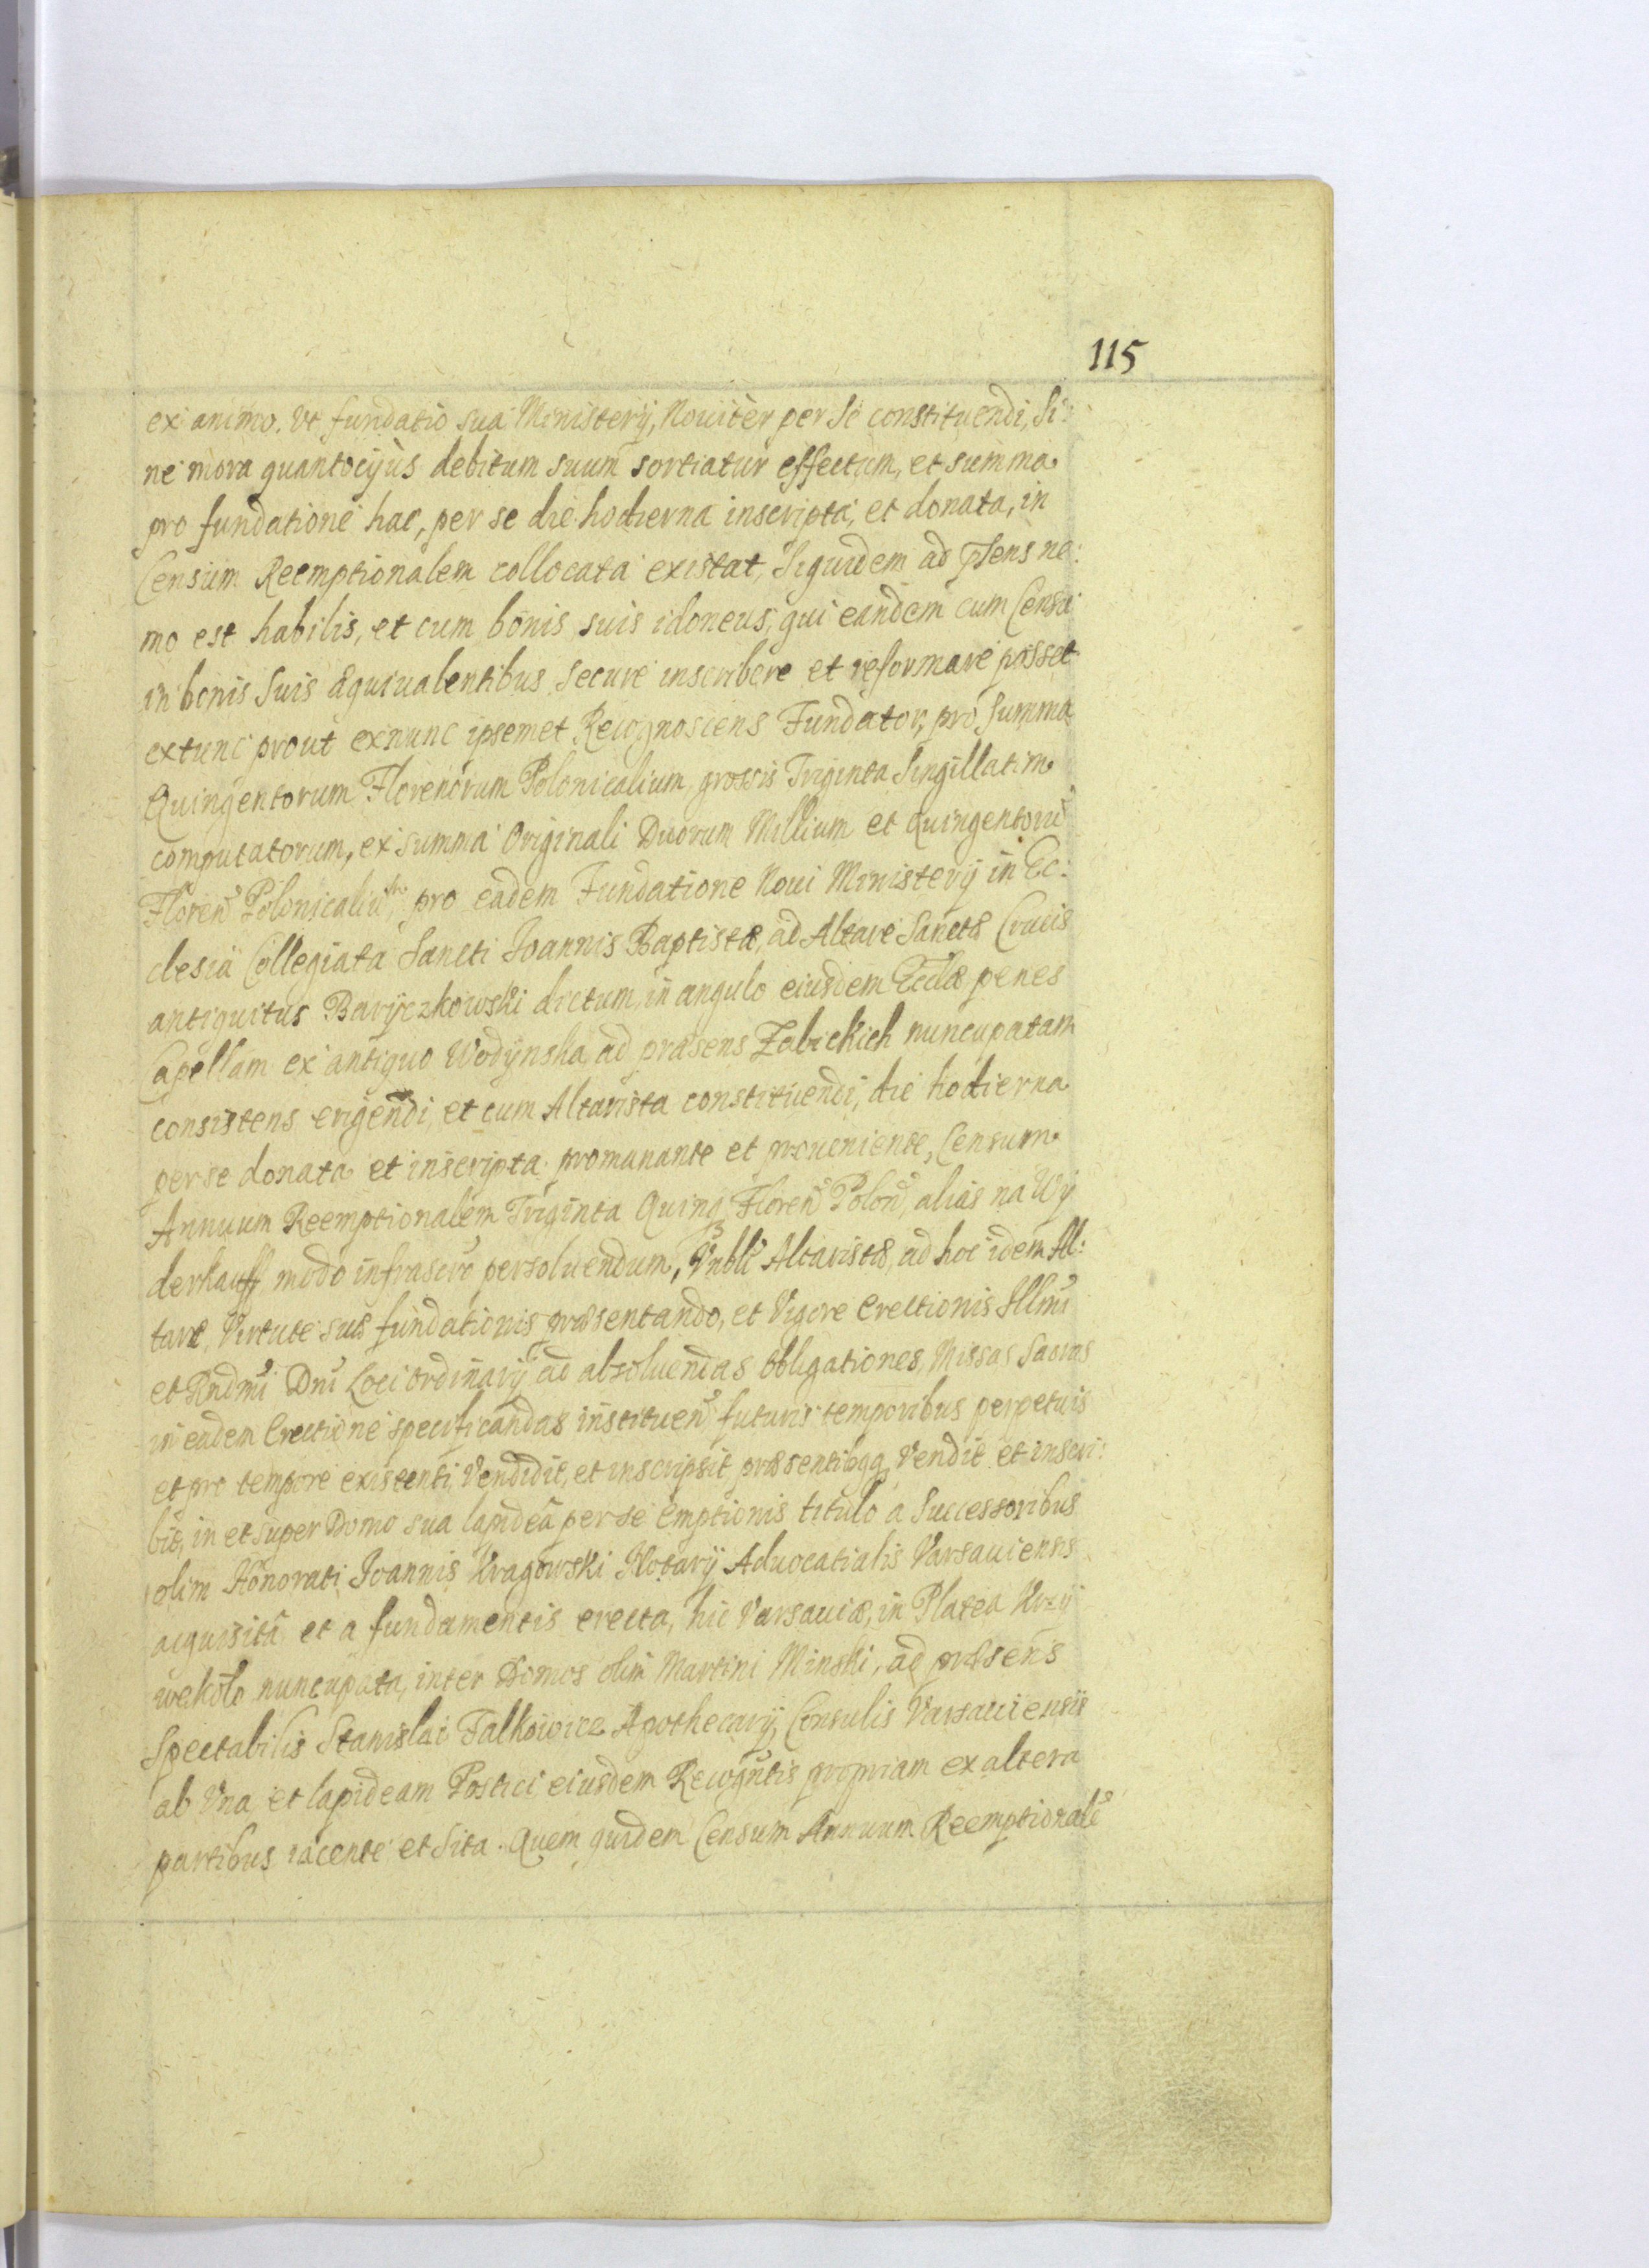 115
ex animo. Vt fundatio sua Ministerÿ, Nouiter per se constituendi, Si:
ne mora quantocÿus debitum suum sortiatur effectum, et summa
pro fundatione hac, per se die hodierna inscripta, et donata, in
Censum Reemptionalem collocata existat, Siquidem ad psens ne:
mo est habilis, et cum bonis suis idoneus, qui eandem cum Censu
in bonis Suis æquiualentibus Secure inscribere et reformare posset
extunc prout exnunc ipsemet Recognoscens Fundator, pro Summa
Quingentorum Florenorum Polonicalium, grossis Triginta Singillatim
computatorum, ex summa Originali Duorum Millium et Quingentorū
Floren Polonicaliū, pro eadem Fundatione Noui Ministerÿ in Ec:
clesia Collegiata Sancti Joannis Baptistæ, ad Altare Sanctæ Crucis
antiquitus Barÿczkowski dictum, in angulo eiusdem Ecclæ penes
Capellam ex antiquo Wodÿnska, ad præsens Zabickich nuncupatam
consistens erigendi, et cum Altarista constituendi, die hodierna
per se donata et inscripta promanante et proueniente, Censum
Annuum Reemptionalem Triginta Quinq Floren Polon, alias na Wÿ
derkauff modo infrascro persoluendum, Vnbli Altaristæ, ad hoc idem Al:
tare, Virtute suæ fundationis præsentando, et Vigore Erectionis Illmi
et Rndmi Dni Loci Ordinarÿ ad absoluendas Obligationes, Missas Sacras
in eadem Erectione specificandas instituen futuris temporibus perpetuis
et pro tempore existenti, Vendidit, et inscripsit, præsentibqq Vendit et inscri:
bit, in et super Domo sua lapidea per se Emptionis titulo a Successoribus
olim Honorati Joannis Kragowski Notarÿ Aduocatialis Varsauiensis
acquisita et a fundamentis erecta, hic Varsauiæ, in Platea Krzÿ
wekoło nuncupata, inter Domos olim Martini Minski, ad præsens
Spectabilis Stanislai Falkowicz Apothecarÿ, Consulis Varsauiensis
ab Vna, et lapideam Postici eiusdem Recogntis propriam ex altera
partibus iacente et Sita. Quem quidem Censum Annuum Reemptionalē